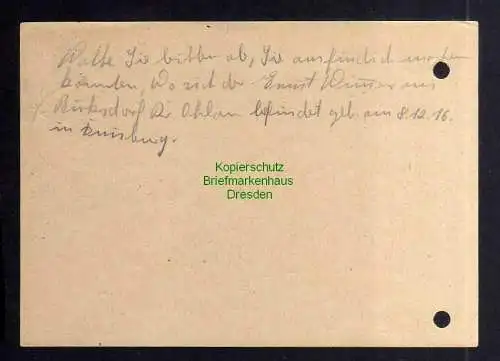 Wollte Sie bitten ob, Sie ausfindich machen
könnten, Wo sich der Ernst aus
Kr Ohlau befindet geb am 8.12.16.
in Duisburg.
Kopierschutz
Briefmarkenhaus
Dresden